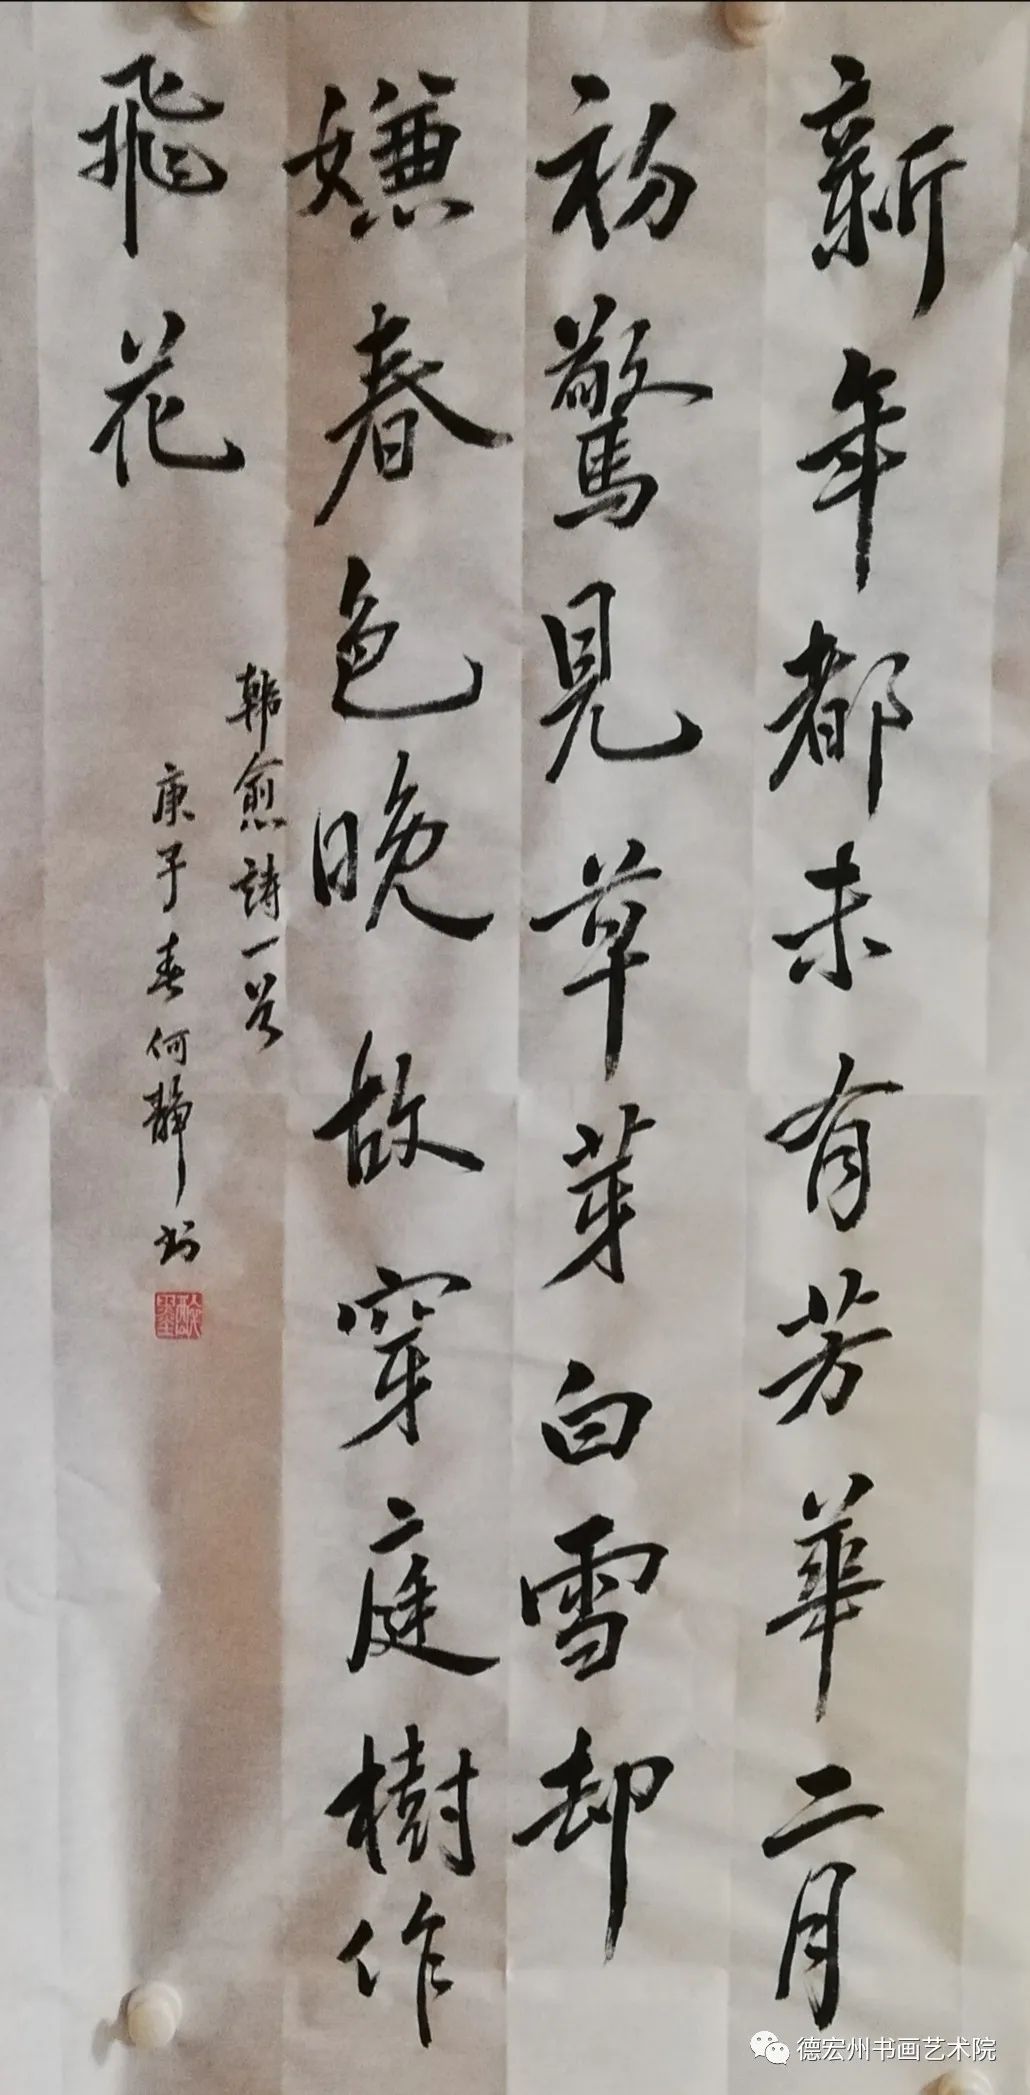 新年都未有芳華二月
初驚見草芽白雪却
嫌春色晚故穿庭樹作
飛花
韩愈詩一首
庚子春何靜书
德宏州书画艺术院